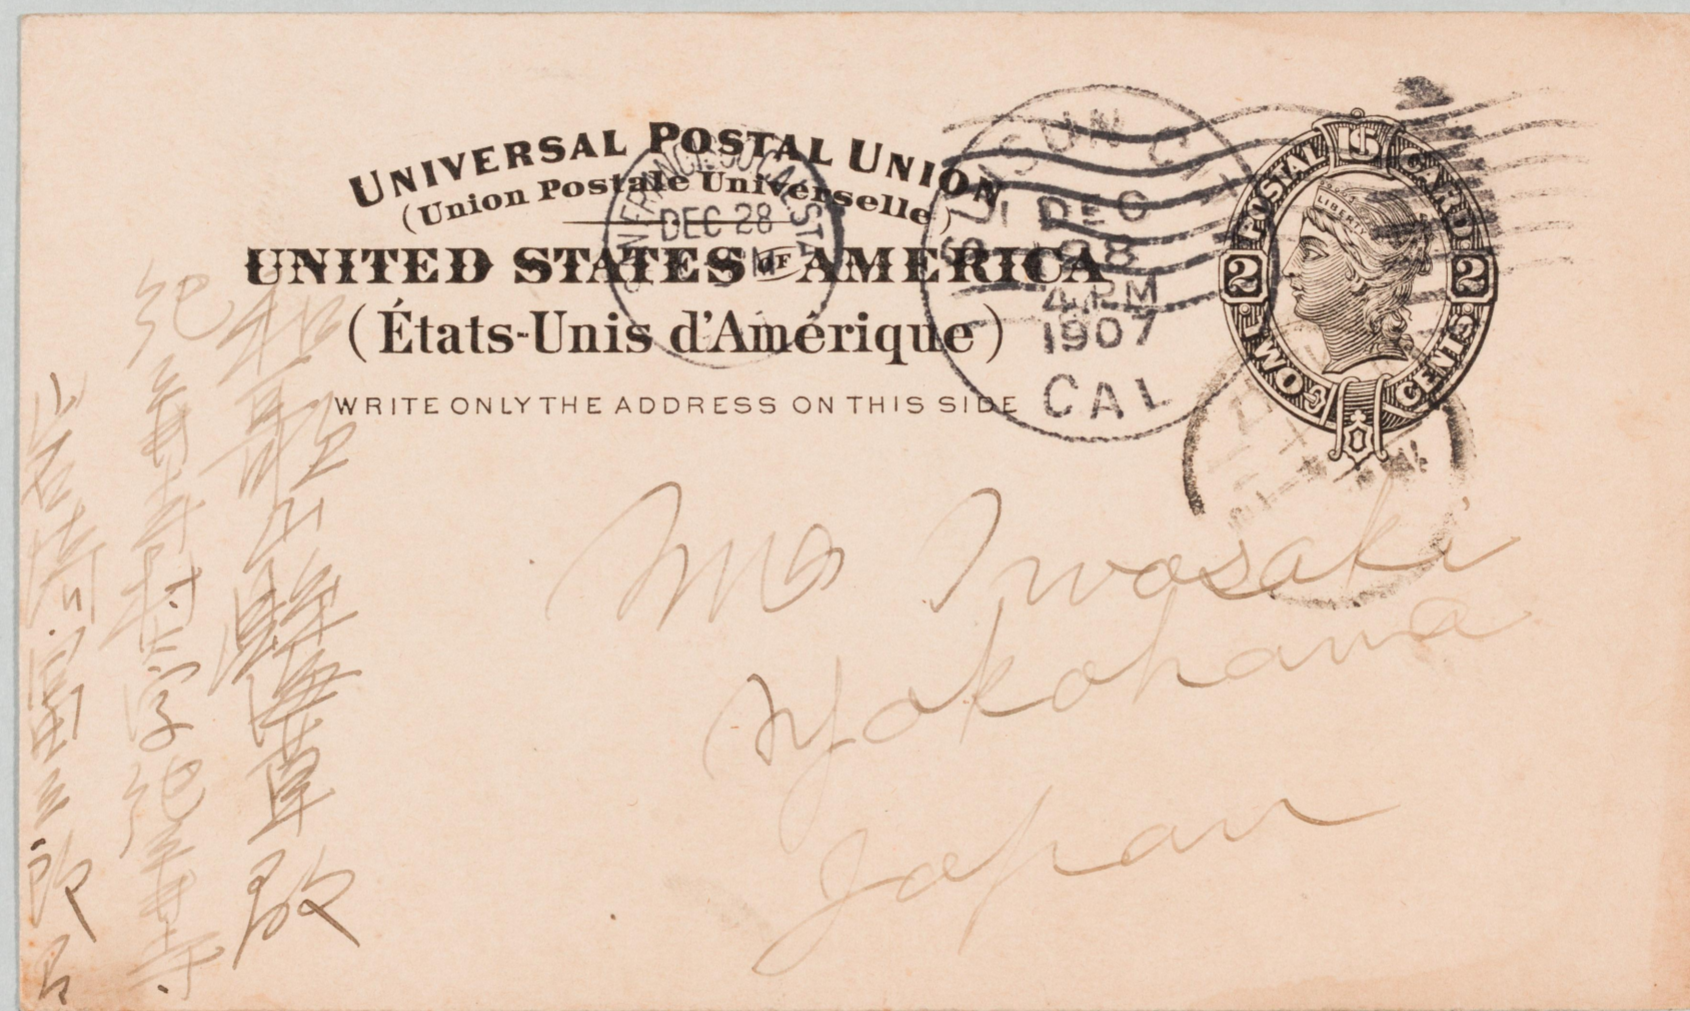 UNIVERSAL POSTAL UNION
(Union Postale Universelle)
UNITED STATES OF AMERICA
(États-Unis d'Amérique)
WRITE ONLY THE ADDRESS ON THIS SIDE
DEC 28
DEC
28
4 PM
1907
CAL
U.S. POSTAL CARD
LIBERTY
2 2
TWO CENTS
Iwosaki
Yokohama
Japan
和歌山縣海草郡
紀三井寺村大字紀三井寺
岩﨑富三郎